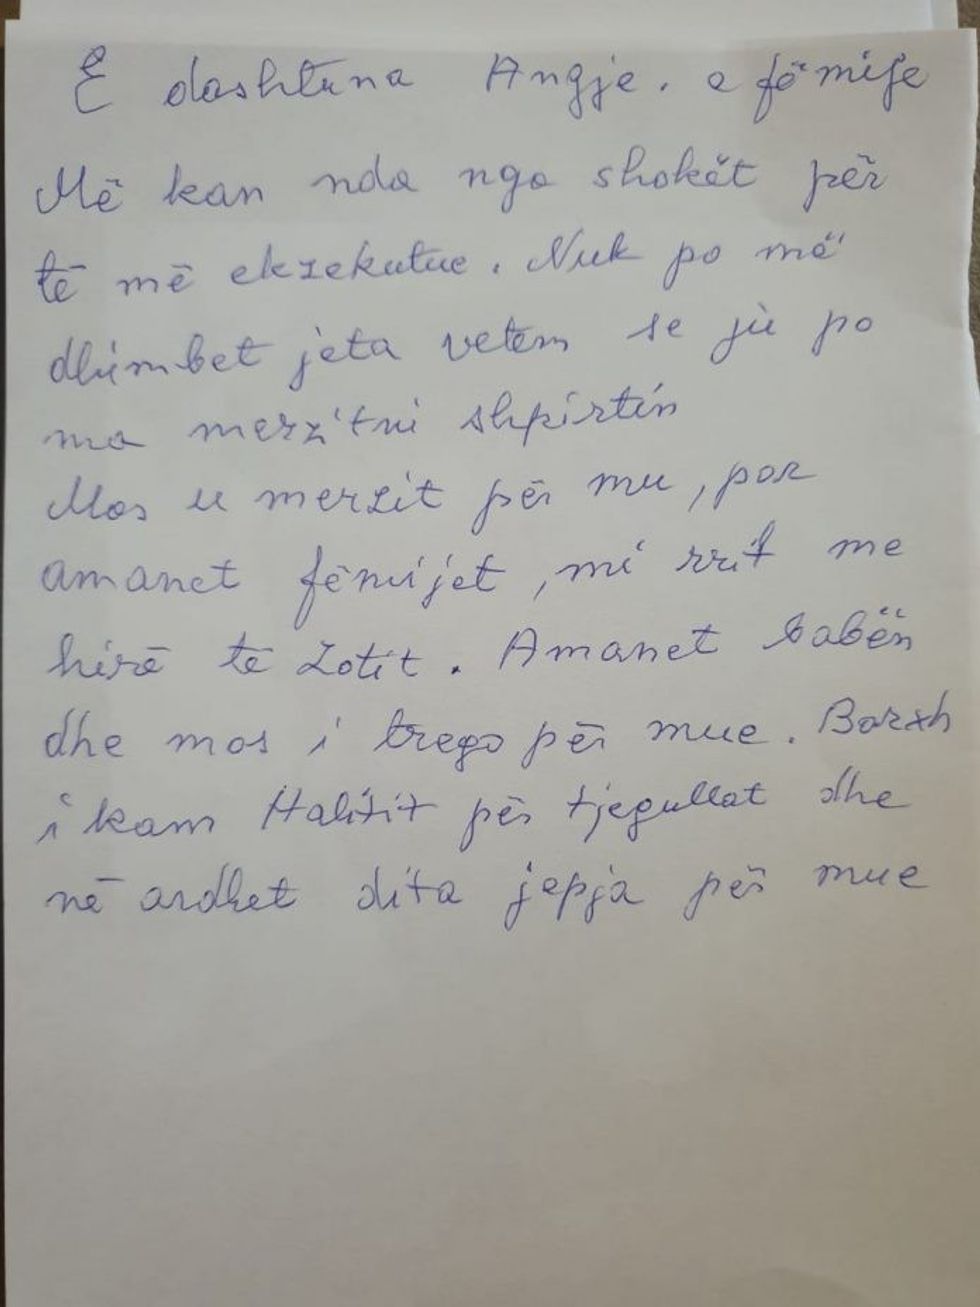 E dashtuna Angje. e fëmije
Më kan nda nga shokët për
të më ekzekutue. Nuk po më
dhimbet jeta vetem se ju po
ma merzitni shpirtin
Mos u merzit për mu, por
amanet fëmijet, mi rrit me
hirë të Zotit. Amanet babën
dhe mos i trego për mue. Borxh
i kam Halitit për tjegullat dhe
në ardhet dita jepja për mue